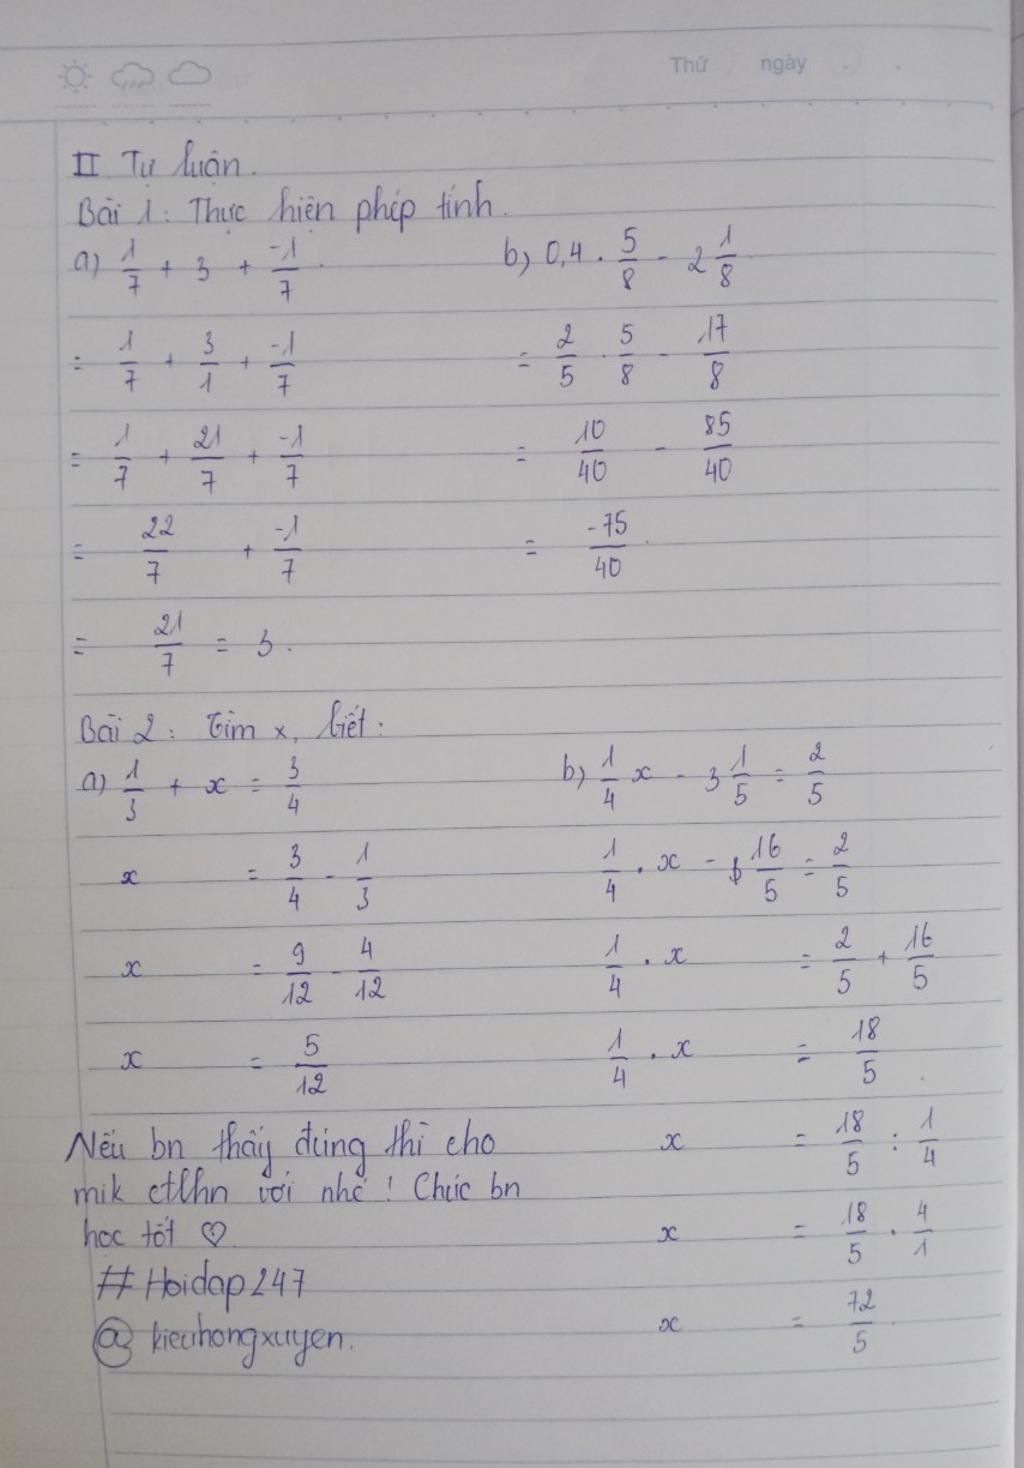 Thứ ngày
II Tự luận.
Bài 1: Thực hiện phép tính.
a) 1/7 + 3 + -1/7
= 1/7 + 3/1 + -1/7
= 1/7 + 21/7 + -1/7
= 22/7 + -1/7
= 21/7 = 3.
b) 0,4 . 5/8 - 2 1/8
= 2/5 . 5/8 - 17/8
= 10/40 - 85/40
= -75/40
Bài 2: Tìm x, biết:
a) 1/3 + x = 3/4
x = 3/4 - 1/3
x = 9/12 - 4/12
x = 5/12
b) 1/4 x - 3 1/5 = 2/5
1/4 . x - 16/5 = 2/5
1/4 . x = 2/5 + 16/5
1/4 . x = 18/5
x = 18/5 : 1/4
x = 18/5 . 4/1
x = 72/5
Nếu bn thấy đúng thì cho
mik ctlhn với nhé ! Chúc bn
học tốt ♡
#Hoidap247
@ kieuhongxuyen.